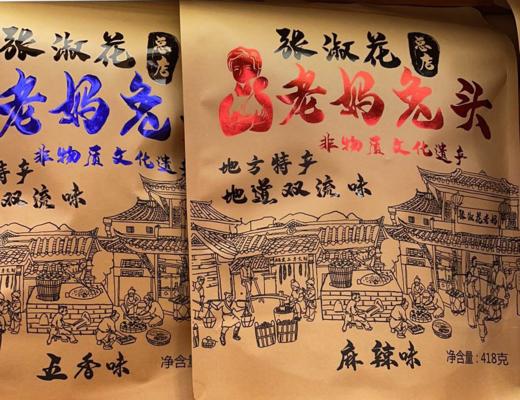 张淑花
总店
老妈兔
非物质文化遗产
地方特产
双流味
五香味
净含量
张淑花
总店
老妈兔头
非物质文化遗产
地方特产
地道双流味
张淑花老妈
麻辣味
净含量：418克